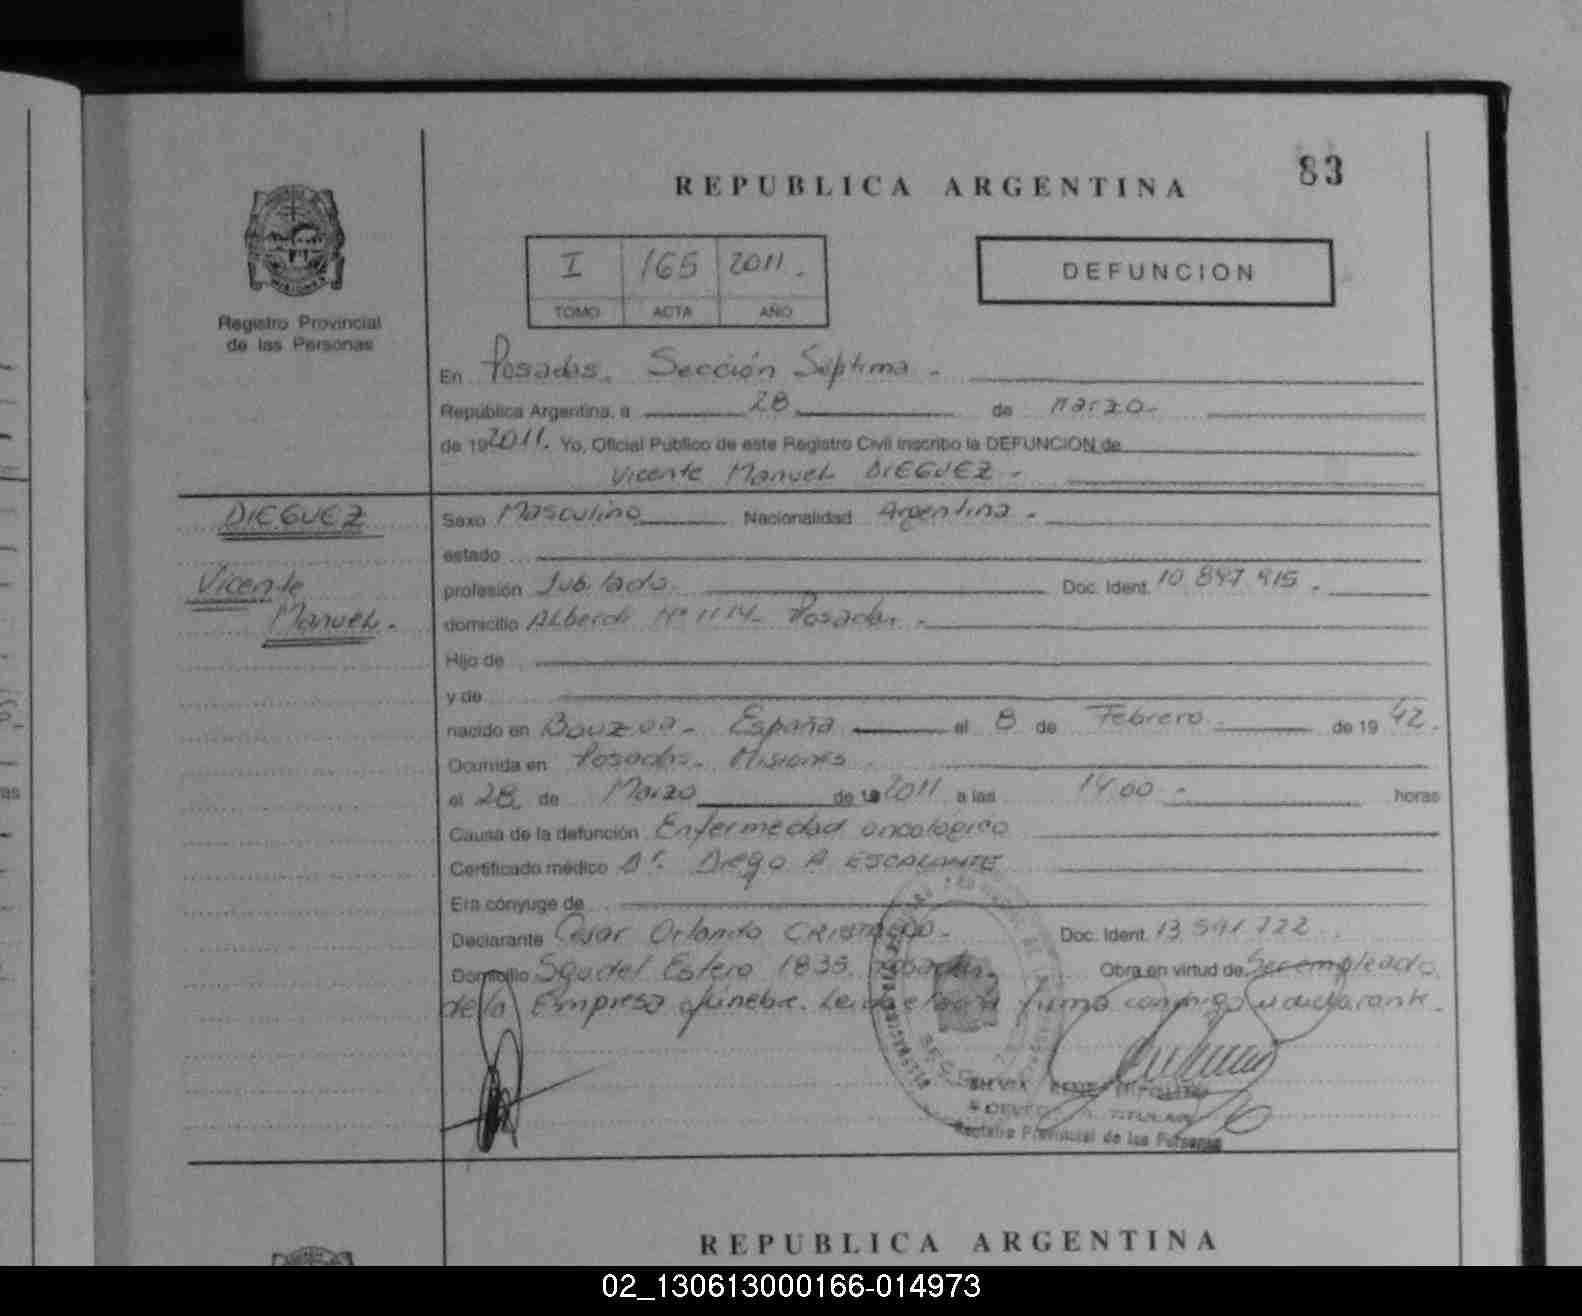 83
REPUBLICA ARGENTINA
I 165 2011.
TOMO ACTA AÑO
DEFUNCION
MISIONES
Registro Provincial
de las Personas
En Posadas. Sección Séptima.
República Argentina, a 28 de Marzo.
de 19 2011. Yo, Oficial Público de este Registro Civil inscribo la DEFUNCION de
Vicente Manuel DIEGUEZ.
DIEGUEZ
Vicente
Manuel.
Sexo Masculino Nacionalidad Argentina.
estado
profesión Jubilado. Doc. Ident. 10.897.915.
domicilio Alberdi Nº 1114. Posadas.
Hijo de
y de
nacido en España el 8 de Febrero de 1942.
Ocurrida en Posadas. Misiones
el 28 de Marzo de 19 2011 a las 14.00. horas
Causa de la defunción Enfermedad oncologica
Certificado médico Dr. Diego A ESCALANTE
Era cónyuge de
Declarante Cesar Orlando Doc. Ident. 13.591.722
Domicilio Sgo del Estero 1835. Posadas. Obra en virtud de Ser empleado
de la Empresa fúnebre. Leida el acta firma conmigo el declarante.
TITULAR
Registro Provincial de las Personas
REPUBLICA ARGENTINA
02_130613000166-014973